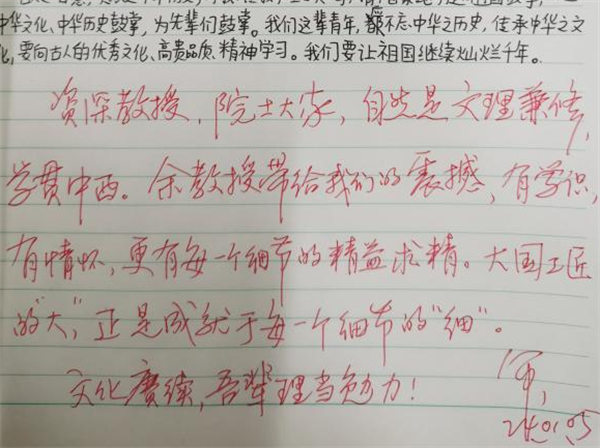 中华文化、中华历史鼓掌,为先辈们鼓掌。我们这辈青年,不忘中华之历史,传承中华之文
化,要向古人的优秀文化、高贵品质、精神学习。我们要让祖国继续灿烂千年。
资深教授,院士大家,自然是文理兼修,
学贯中西。余教授带给我们的震撼,有学识,
有情怀,更有每一个细节的精益求精。大国工匠
的“大”,正是成就于每一个细节的“细”。
文化赓续,吾辈理当勉力!
24.01.05